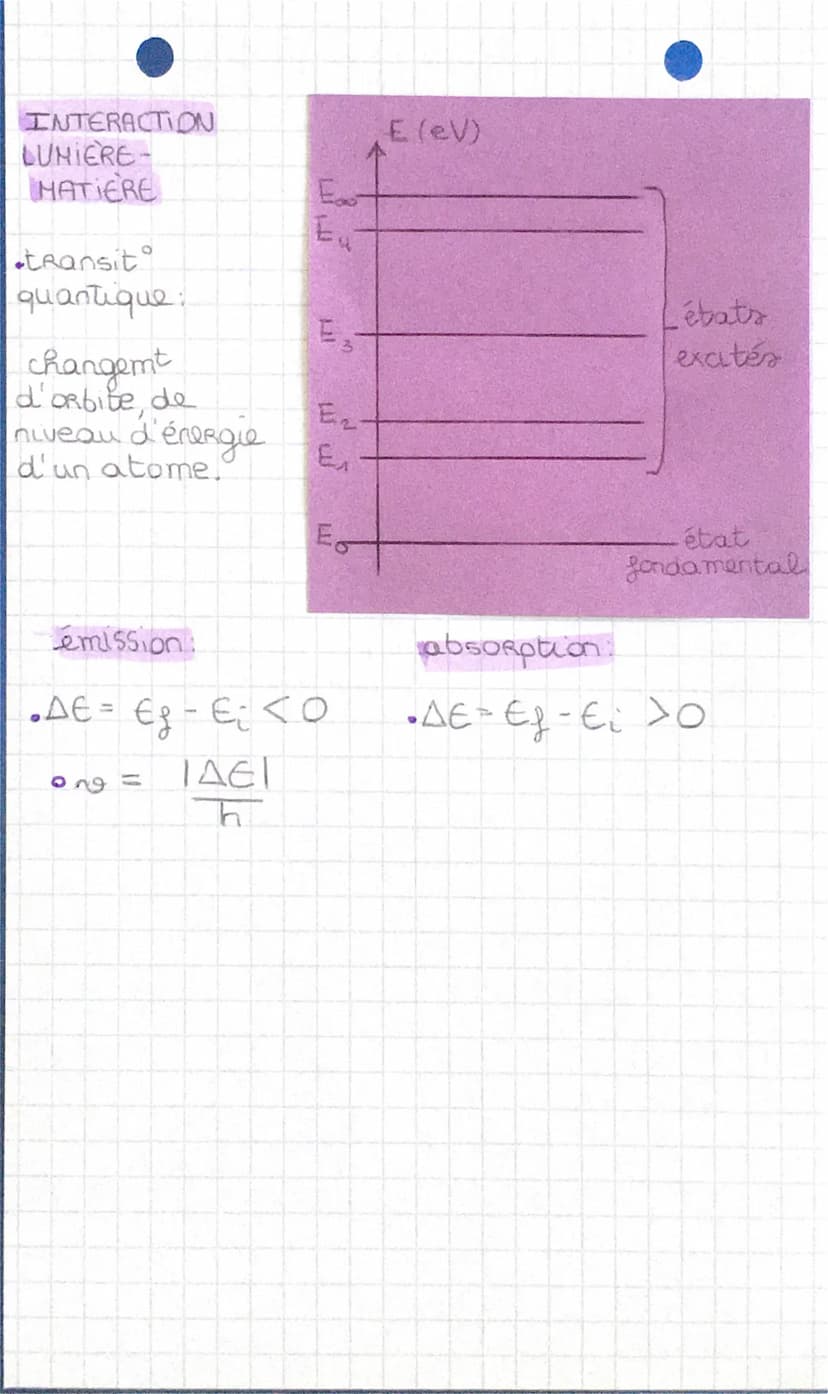 INTERACTION
LUMIÈRE-
MATIÈRE
.transit°
quantique:
changemt
d'orbite, de
niveau d'énergie
d'un atome.
E (eV)
E∞
E4
E3
E2
E1
E0
états
excités
état
fondamental
émission:
.ΔE = Ef - Ei < 0
o ng = |ΔE|
h
absorption:
.ΔE = Ef - Ei > 0